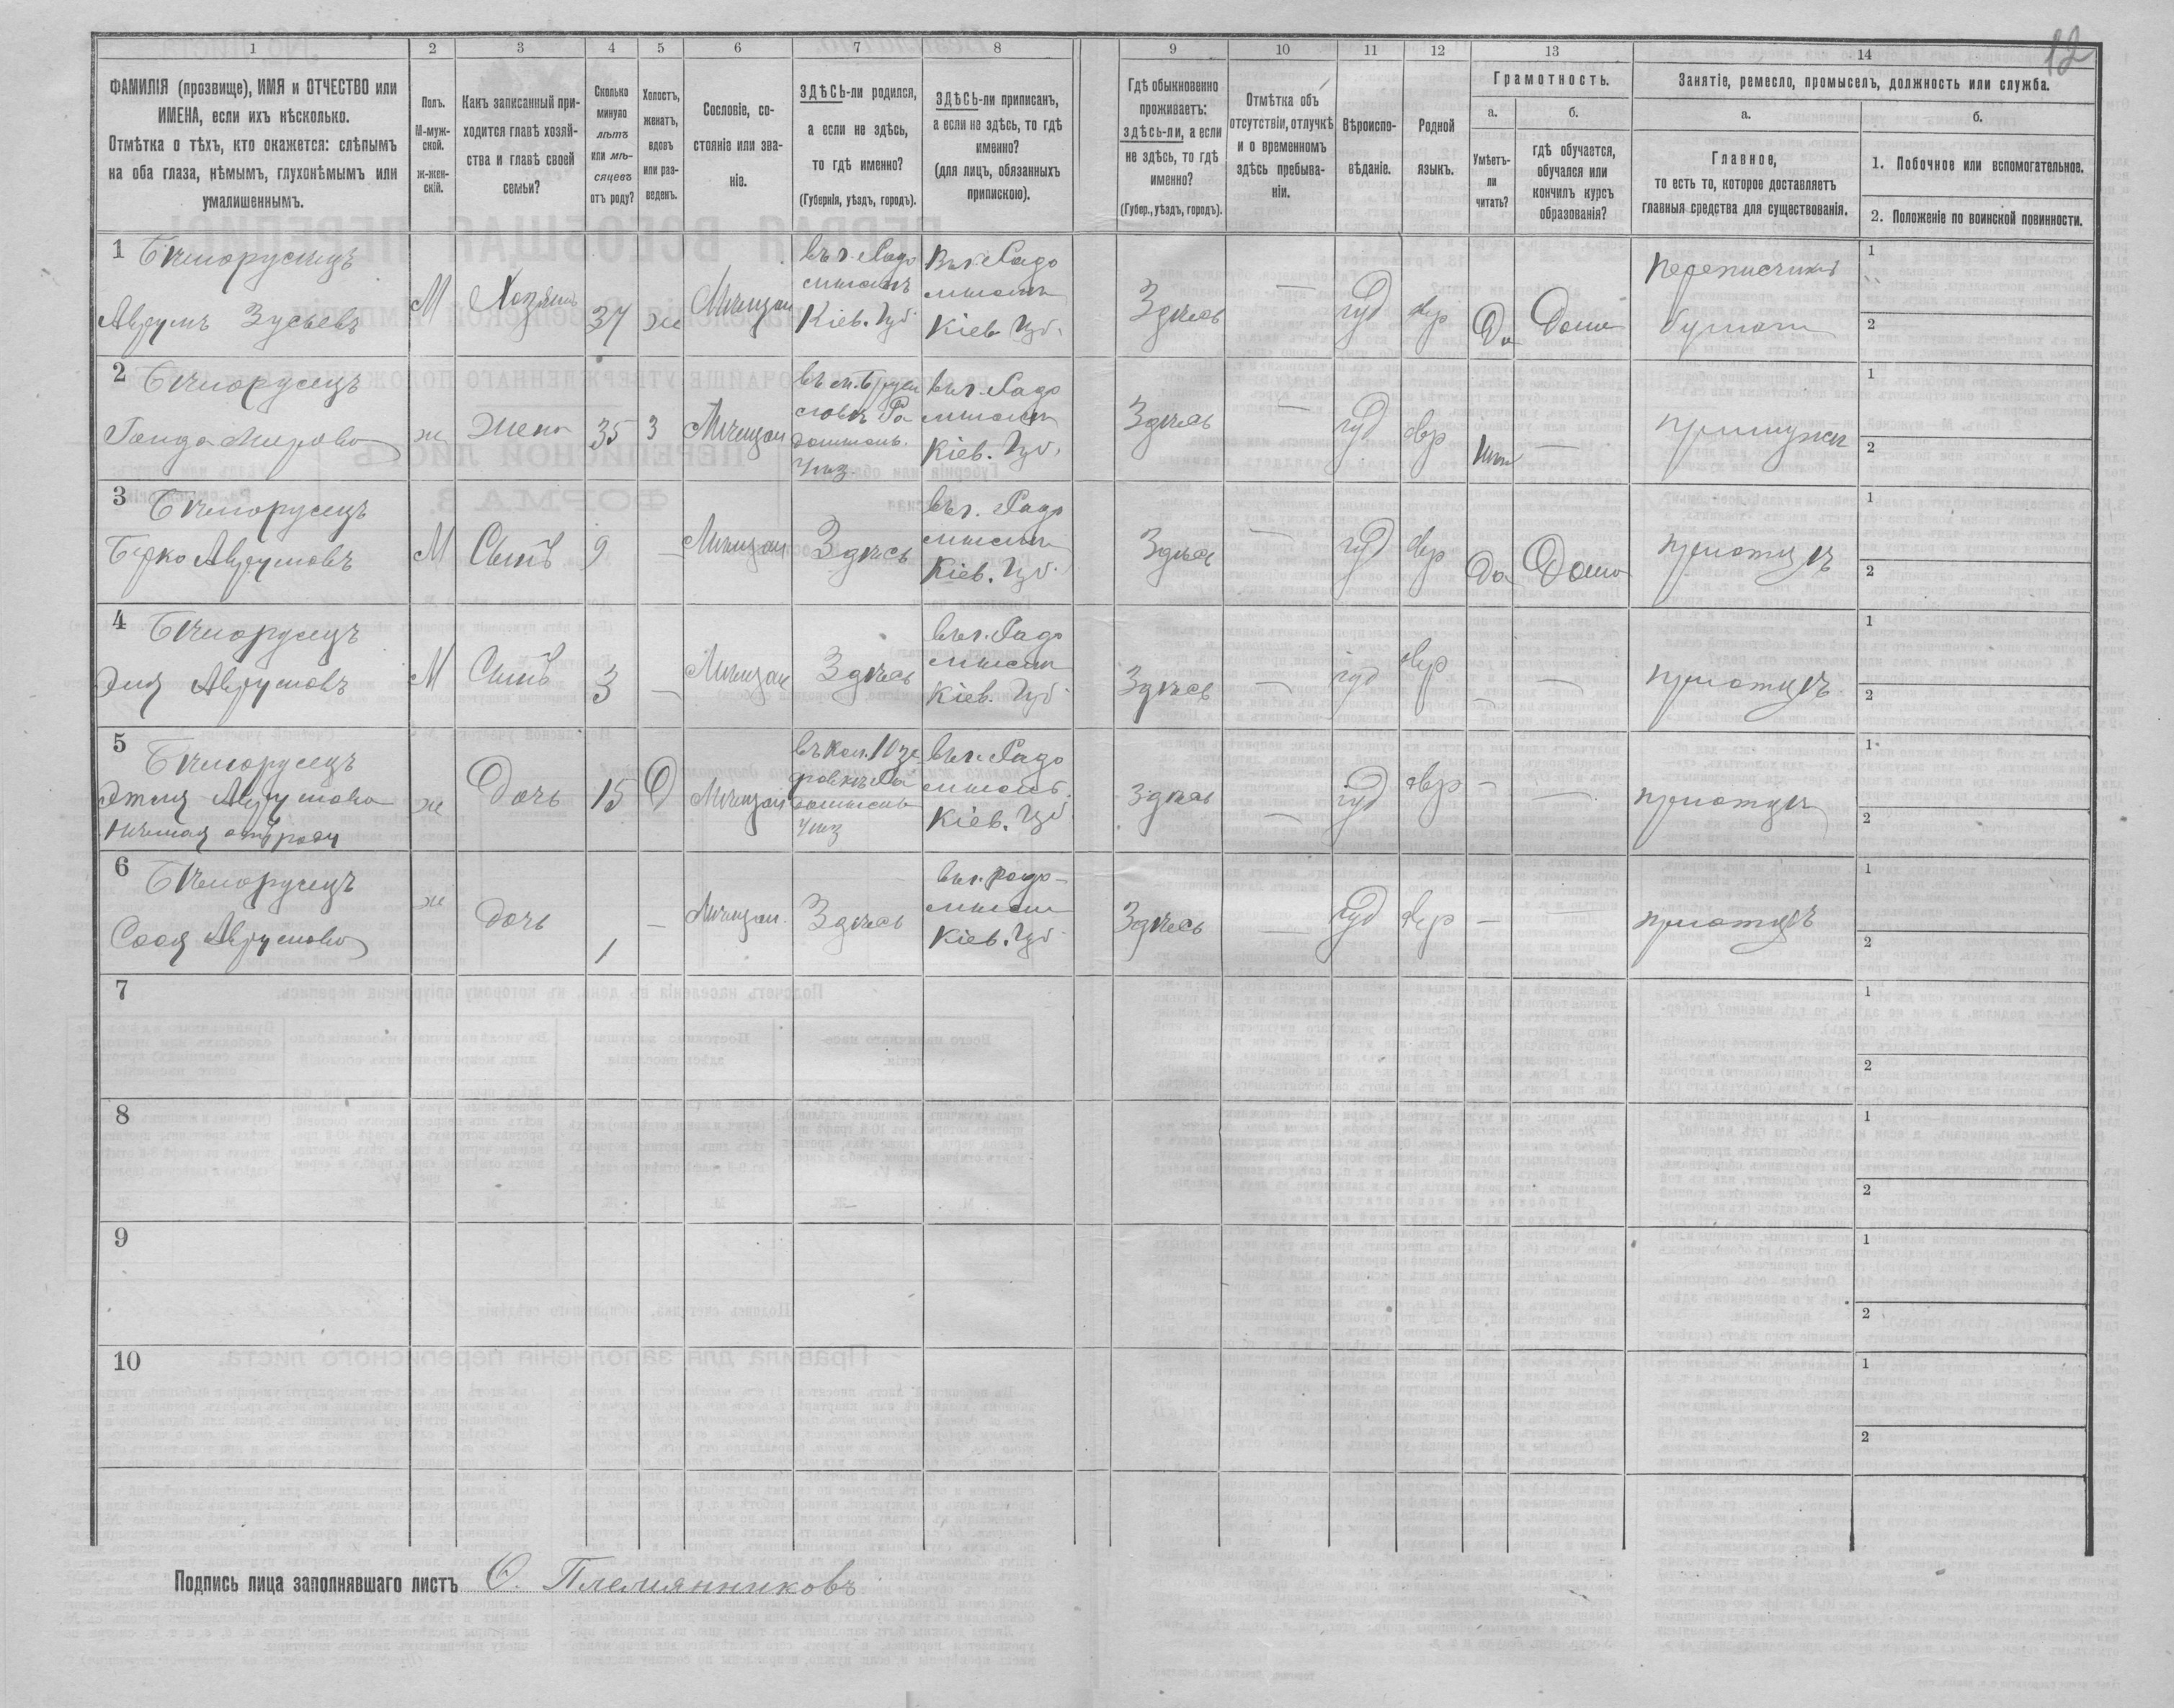 12
1 2 3 4 5 6 7 8 9 10 11 12 13 14
ФАМИЛІЯ (прозвище), ИМЯ и ОТЧЕСТВО или
ИМЕНА, если ихъ нѣсколько.
Отмѣтка о тѣхъ, кто окажется: слѣпымъ
на оба глаза, нѣмымъ, глухонѣмымъ или
умалишеннымъ.
Полъ.
М-муж-
ской.
Ж-жен-
скій.
Какъ записанный при-
ходится главѣ хозяй-
ства и главѣ своей
семьи?
Сколько
минуло
лѣтъ
или мѣ-
сяцевъ
отъ роду?
Холостъ,
женатъ,
вдовъ
или раз-
веденъ.
Сословіе, со-
стояніе или зва-
ніе.
ЗДѢСЬ-ли родился,
а если не здѣсь,
то гдѣ именно?
(Губернія, уѣздъ, городъ).
ЗДѢСЬ-ли приписанъ,
а если не здѣсь, то гдѣ
именно?
(для лицъ, обязанныхъ
припискою).
Гдѣ обыкновенно
проживаетъ:
здѣсь-ли, а если
не здѣсь, то гдѣ
именно?
(Губер., уѣздъ, городъ).
Отмѣтка объ
отсутствіи, отлучкѣ
и о временномъ
здѣсь пребыва-
ніи.
Вѣроиспо-
вѣданіе.
Родной
языкъ.
Грамотность.
а.
Умѣетъ-
ли
читать?
б.
гдѣ обучается,
обучался или
кончилъ курсъ
образованія?
Занятіе, ремесло, промыселъ, должность или служба.
а.
Главное,
то есть то, которое доставляетъ
главныя средства для существованія.
б.
1. Побочное или вспомогательное.
2. Положеніе по воинской повинности.
1 Бѣлорусецъ
Аврумъ Зусьевъ
М
Хозяинъ
37
ж
Мѣщан
въ г. Радо
мыслѣ
Кіев. Губ.
Въ г. Радо
мыслѣ
Кіев. Губ.
Здѣсь
—
іуд
евр
Да
Дома
переписчикъ
бумаг
1
2
2 Бѣлорусецъ
ж
Жена
35
З
Мѣщан
въ г. Радо
мыслѣ
Кіев. Губ.
Здѣсь
—
іуд
евр
—
при мужѣ
1
2
3 Бѣлорусецъ
Берко Аврумовъ
М
Сынъ
9
—
Мѣщан
Здѣсь
въ г. Радо
мыслѣ
Кіев. Губ.
Здѣсь
—
іуд
евр
Да
Дома
при отцѣ
1
2
4 Бѣлорусецъ
Эля Аврумовъ
М
Сынъ
3
—
Мѣщан
Здѣсь
въ г. Радо
мыслѣ
Кіев. Губ.
Здѣсь
—
іуд
евр
—
—
при отцѣ
1
2
5 Бѣлорусецъ
Аврумова
Нѣмая отъ роду
ж
Дочь
15
Д
Мѣщан
въ г. Радо
мыслѣ
Кіев. Губ
здѣсь
—
іуд
евр
—
—
при отцѣ
1
2
6 Бѣлорусецъ
Сося Аврумова
ж
дочь
1
—
Мѣщан.
Здѣсь
въ г. Радо-
мыслѣ
Кіев. Губ.
Здѣсь
—
іуд
евр
—
—
при отцѣ
1
2
7
1
2
8
1
2
9
1
2
10
1
2
Подпись лица заполнявшаго листъ О. Племянниковъ